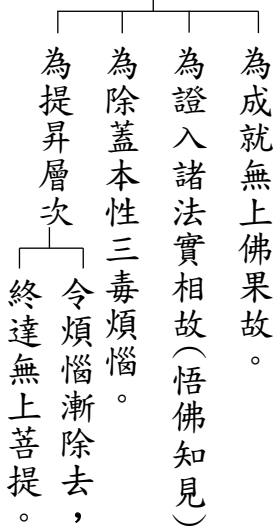 為成就無上佛果故。
為證入諸法實相故(悟佛知見)
為除蓋本性三毒煩惱。
為提昇層次
令煩惱漸除去，
終達無上菩提。